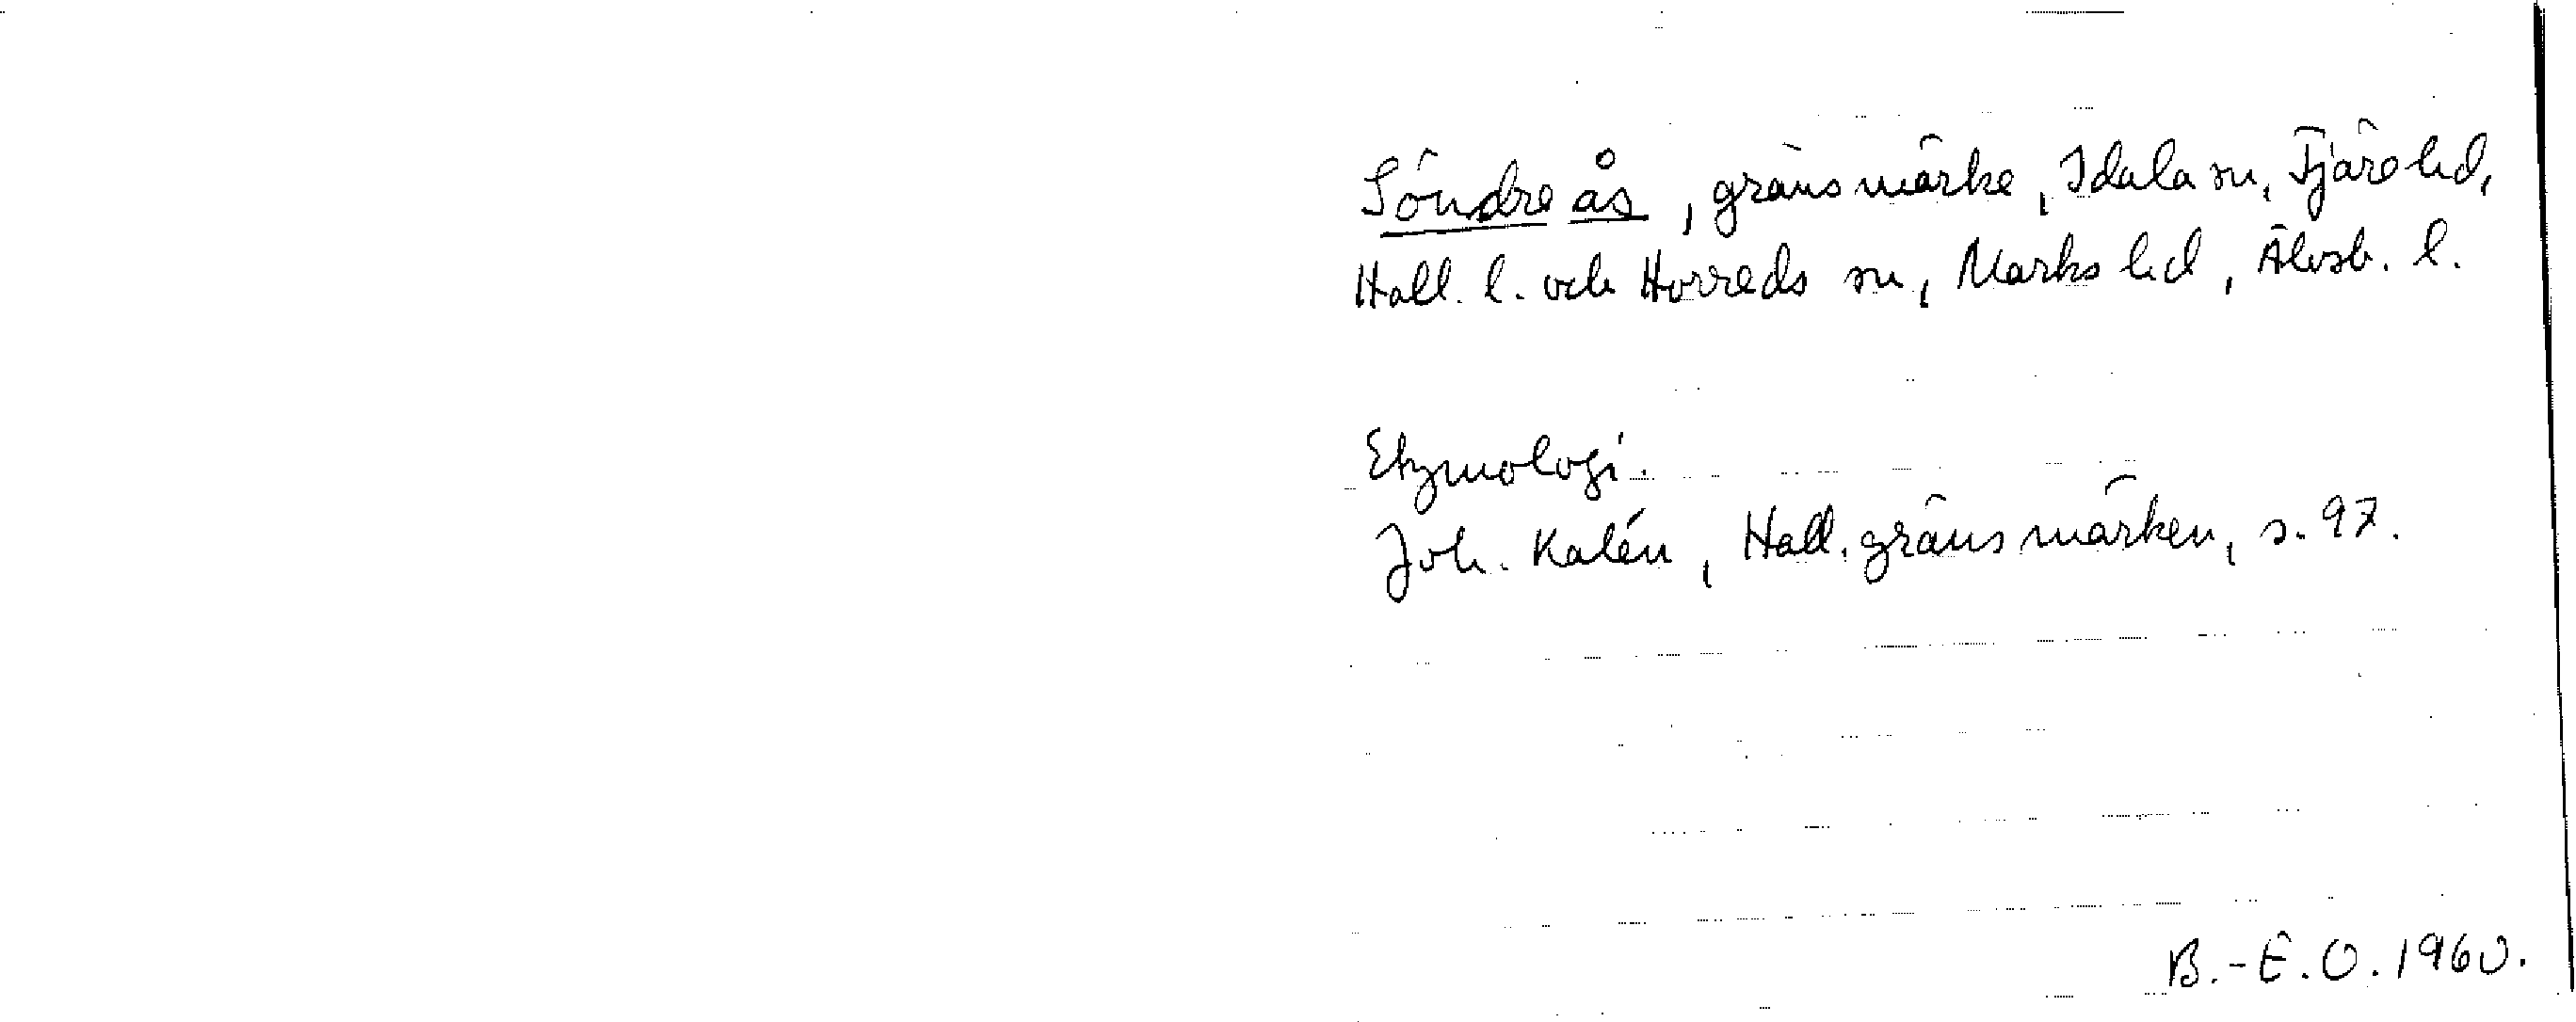 Söndre ås, gränsmärke, Idala sn, Fjäre hd,
Hall. l. och Horreds sn, Marks hd, Älvsb. l.
Etymologi.
Joh. Kalén, Hall. gränsmärken, s. 97.
B.-E.O. 1960.